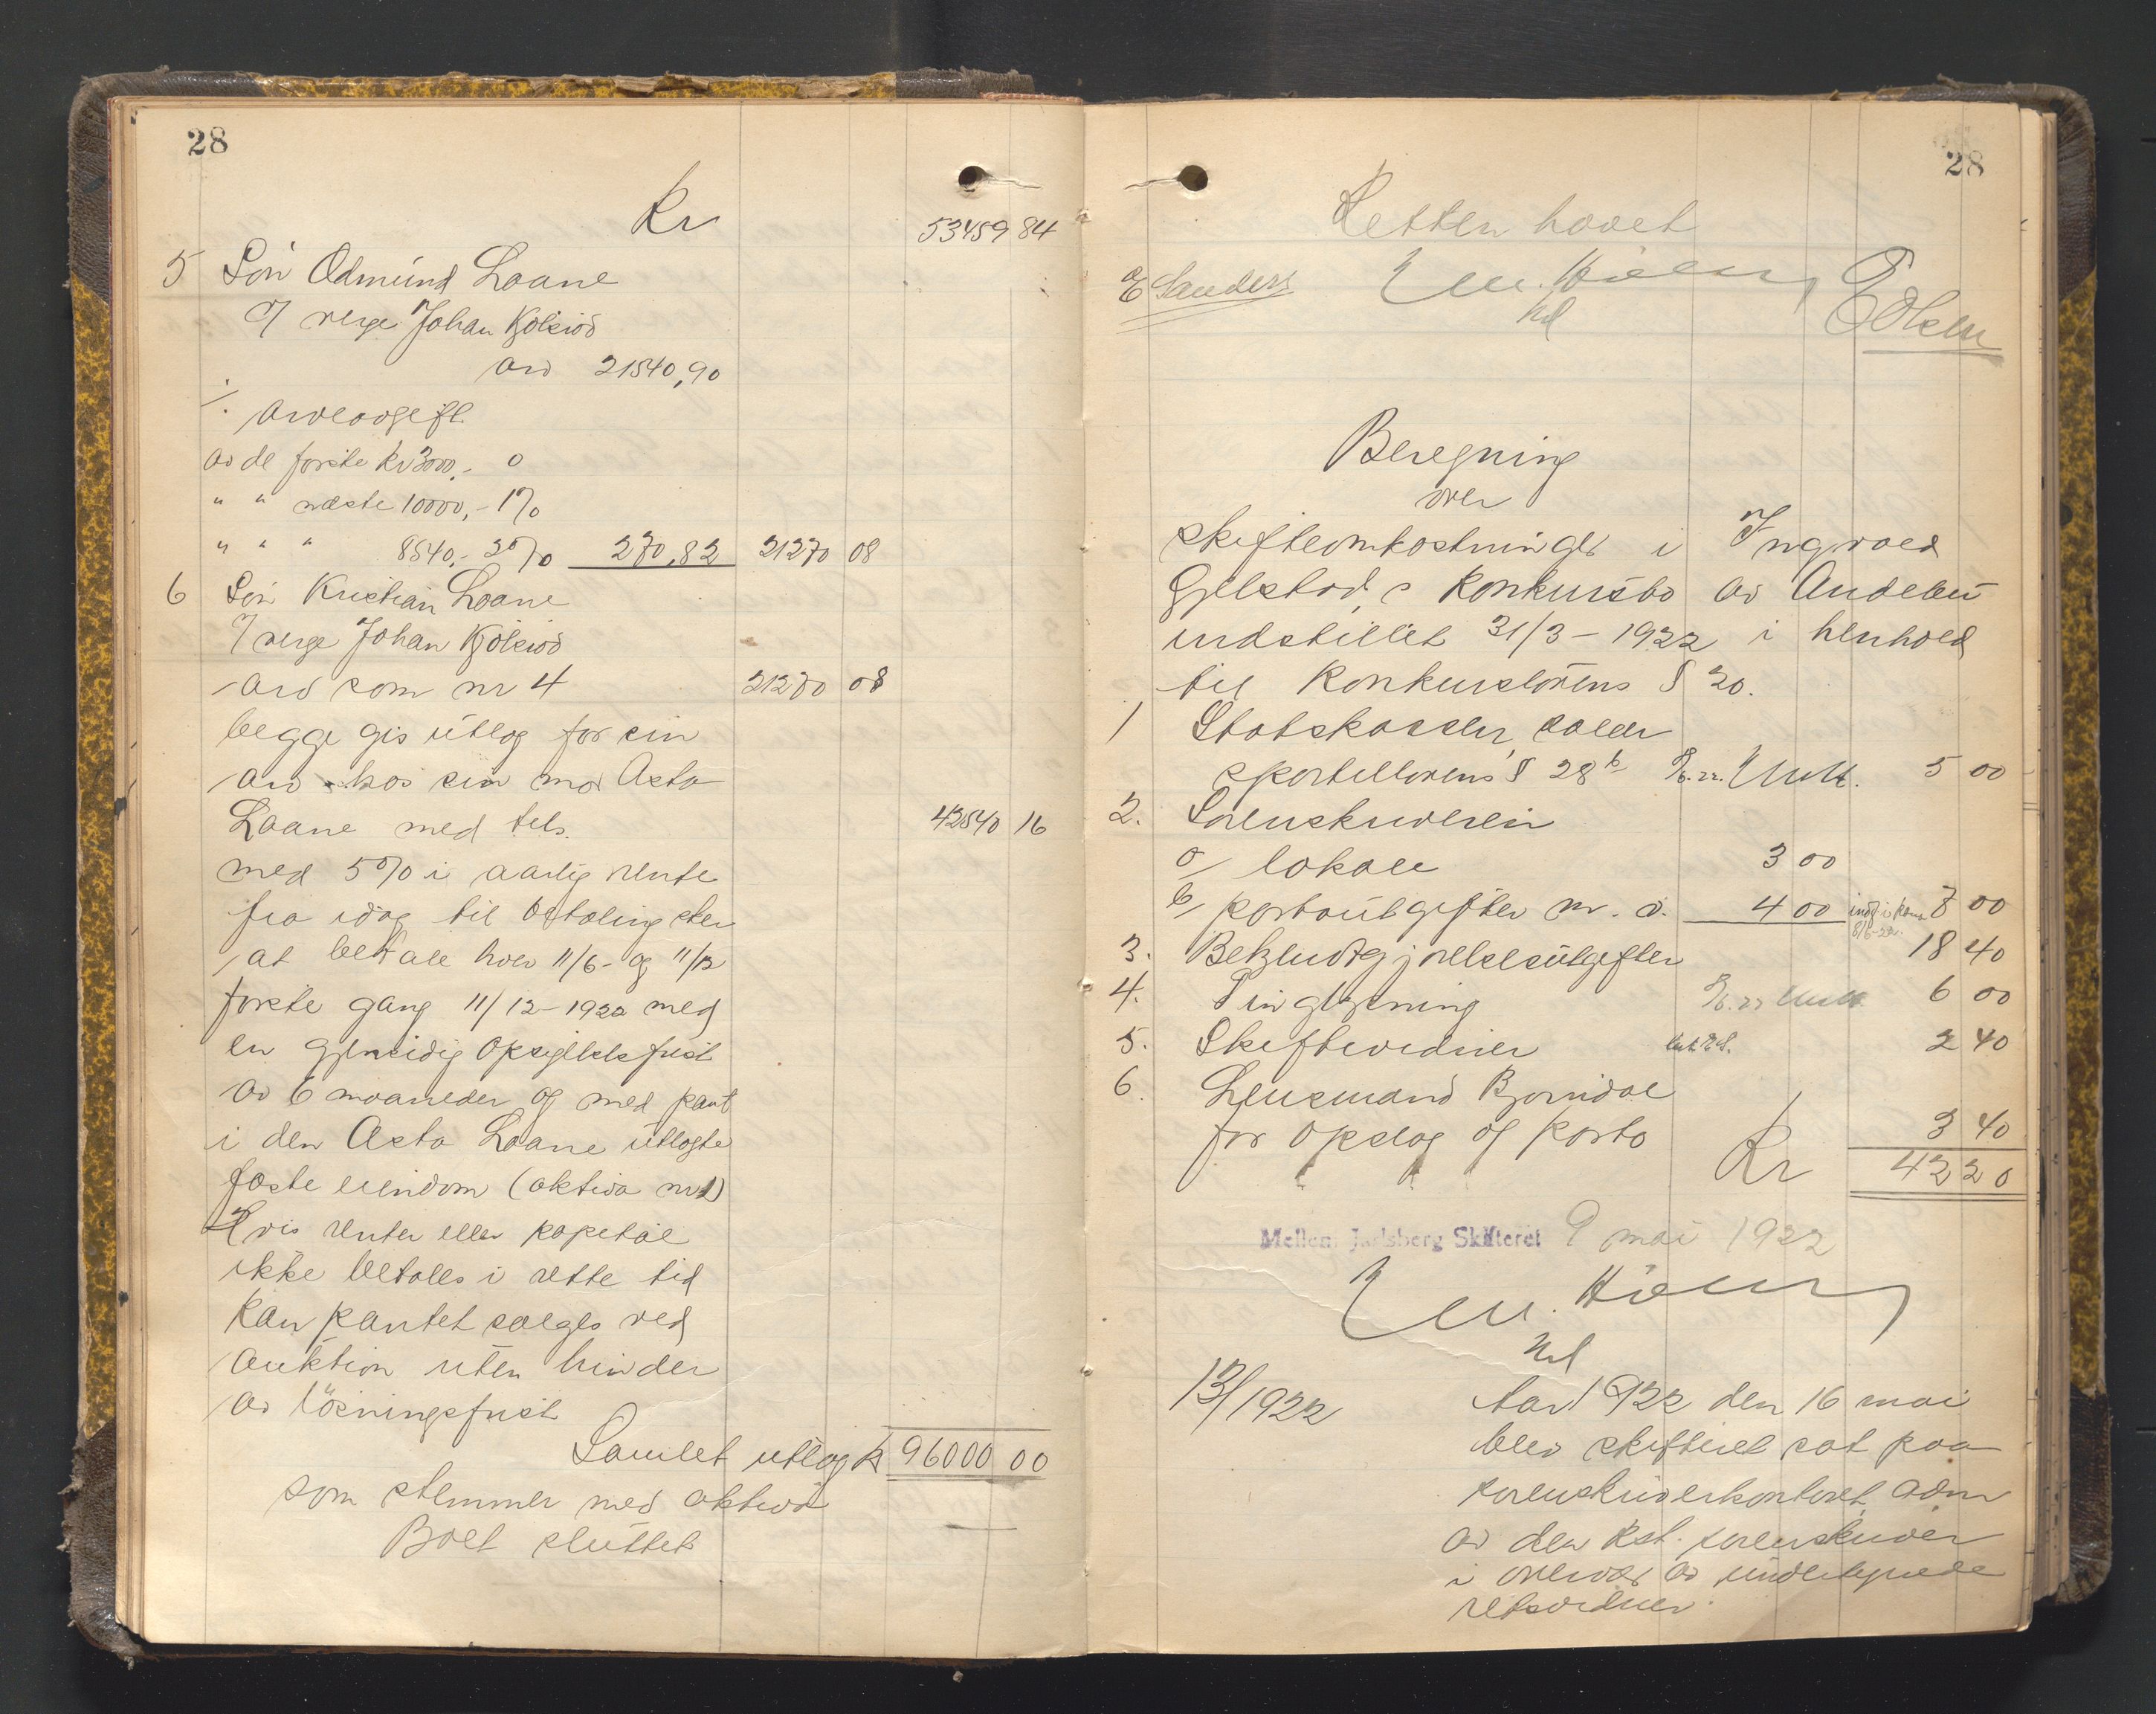 28
Kr 53459 84
5 Søn Odmund Loane
v/ verge Johan Kjølsrød
arv 21540,90
÷ arveavgift
av de første Kr 3000,- 0
" " næste 10000,- 1%
" " " 8540,- 2% 270,82 21270 08
6 Søn Kristian Loane
v/ verge Johan Kjølsrød
arv som nr 4 21270 08
begge gis utlæg for sin
arv hos sin mor Asta
Loane med tils. 42540 16
med 5% i aarlig rente
fra idag til betaling sker
at betale hver 11/6- og 11/12
første gang 11/12-1922 med
en gjensidig opsigelsesfrist
av 6 maaneder og med pant
i den Asta Loane utlagte
faste eiendom (aktiva nr 1)
Hvis renter eller kapital
ikke betales i rette tid
kan pantet sælges ved
auktion uten hinder
av løsningsfrist
Samlet utlæg kr 96000 00
som stemmer med aktiva
Boet sluttet
28
Retten hævet
E Sanders
E Olsen
Beregning
over
skifteomkostninger i Ingvald
Gjelstad's konkursbo av Andebu
indstillet 31/3-1922 i henhold
til konkurslovens § 20.
1 Statskassen, saler
sportellovens § 28 b 5 00
2. Sorenskriveren
a/ lokale 3 00
b/ portoutgifter m. v. 4 00 7 00
3. Bekjendtgjørelsesutgifter 18 40
4. Tinglysning 6 00
5. Skiftevidner 2 40
6. Lensmand Bjørndal
for opslag og porto 3 40
Kr 42 20
Mellem Jarlsberg Skifteret 9 mai 1922
13/1922 Aar 1922 den 16 mai
blev skifteret sat paa
sorenskriverkontoret, adm
av den kst. sorenskriver
i overvær av undertegnede
retsvidner.